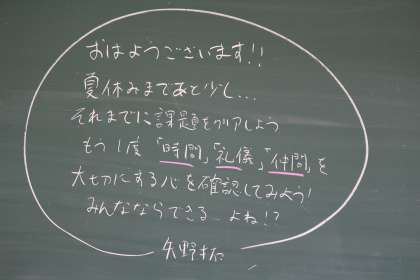 おはようございます!!
夏休みまであと少し...
それまでに課題をクリアしよう
もう1度「時間」「礼儀」「仲間」を
大切にする心を確認してみよう!
みんなならできる…よね!?
矢野拓